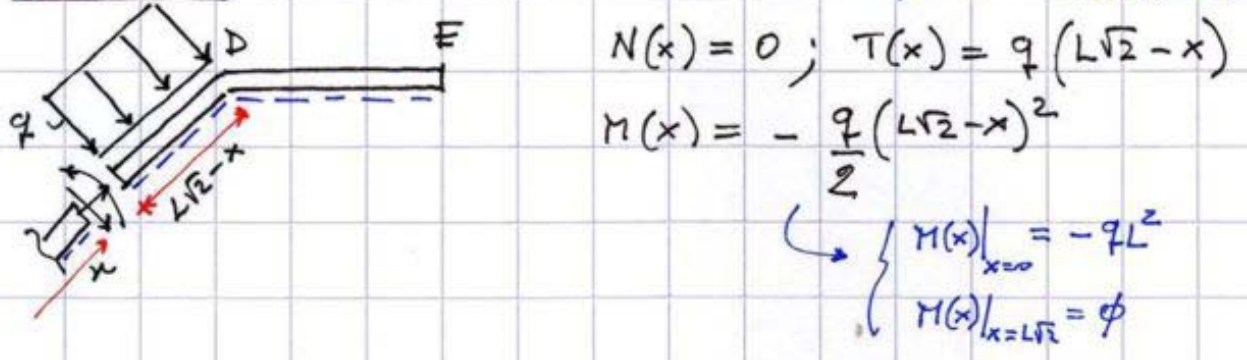 D E
q
L√2-x
x
N(x) = 0 ; T(x) = q (L√2 - x)
M(x) = - q/2 (L√2 - x)²
M(x)|x=0 = - qL²
M(x)|x=L√2 = ϕ